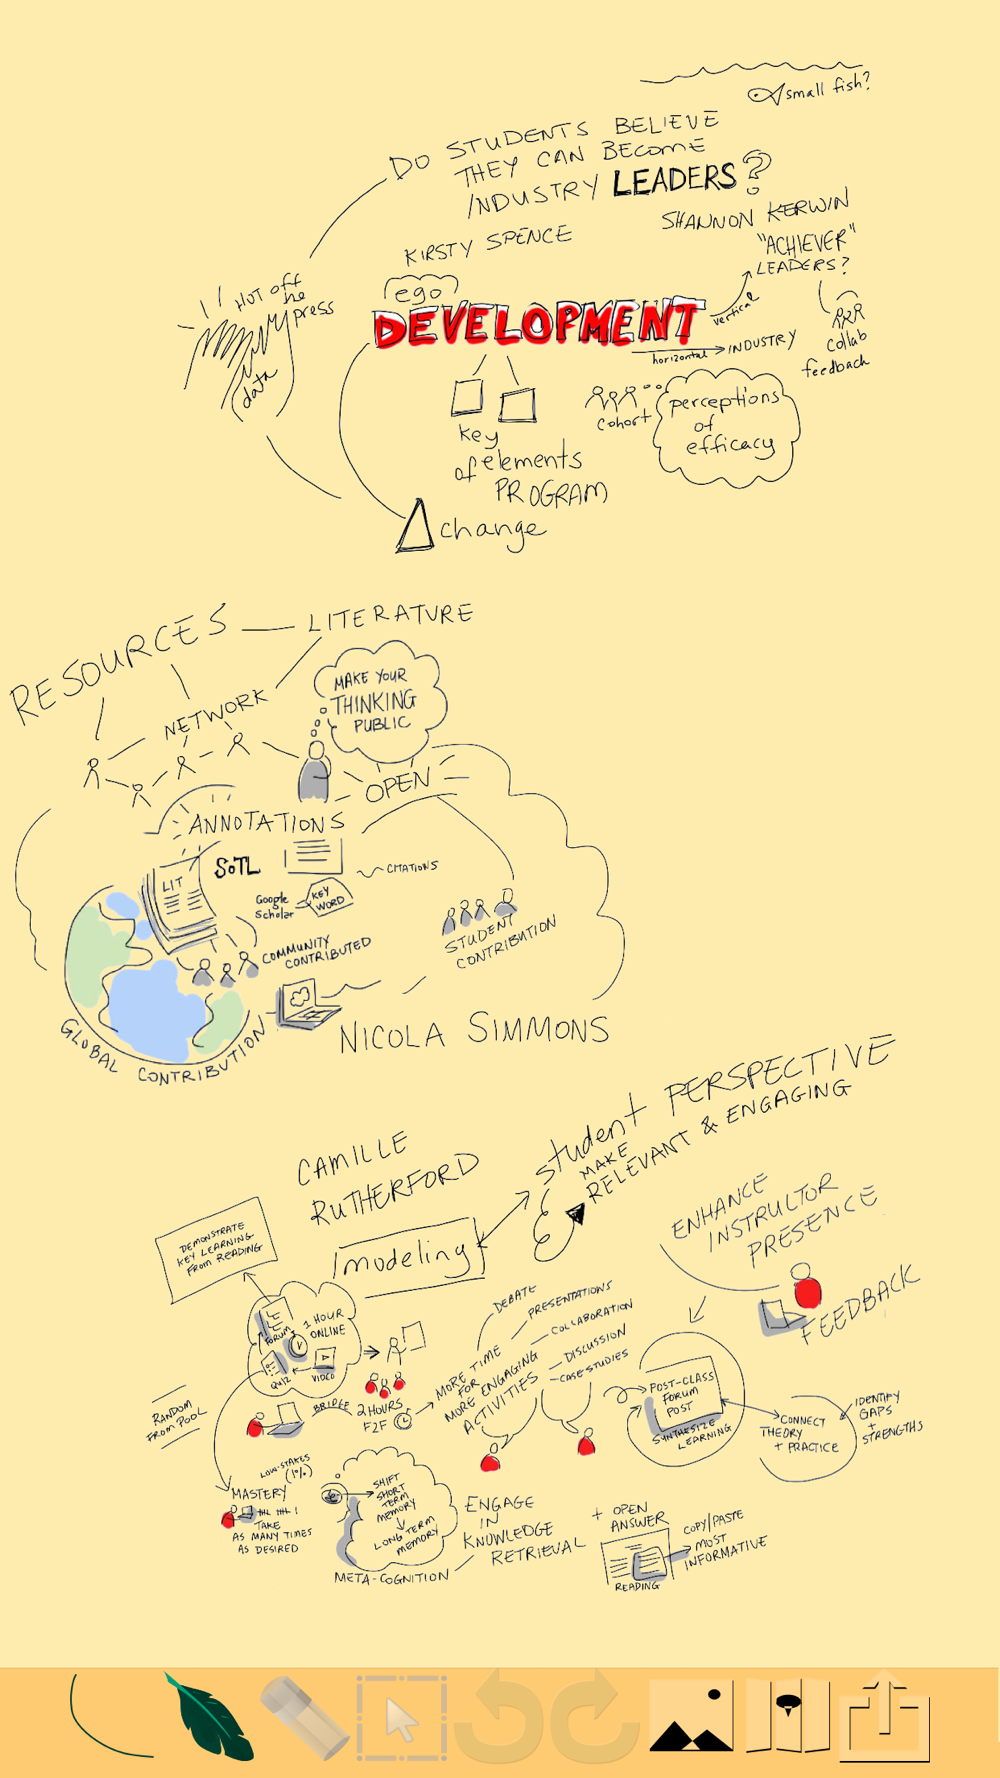 small fish?
DO STUDENTS BELIEVE
THEY CAN BECOME
INDUSTRY LEADERS?
KIRSTY SPENCE
SHANNON KERWIN
"ACHIEVER"
LEADERS?
HOT off
the
press
data
ego
DEVELOPMENT
vertical
horizontal
INDUSTRY
collab
feedback
cohort
perceptions
of
efficacy
key
elements
of
PROGRAM
change
RESOURCES
LITERATURE
NETWORK
MAKE YOUR
THINKING
PUBLIC
OPEN
ANNOTATIONS
LIT
SoTL
CITATIONS
Google
Scholar
KEY
WORD
COMMUNITY
CONTRIBUTED
STUDENT
CONTRIBUTION
GLOBAL CONTRIBUTION
NICOLA SIMMONS
CAMILLE
RUTHERFORD
student PERSPECTIVE
MAKE
RELEVANT & ENGAGING
modeling
ENHANCE
INSTRUCTOR
PRESENCE
FEEDBACK
DEMONSTRATE
KEY LEARNING
FROM READING
FORUM
1 HOUR
ONLINE
QUIZ
VIDEO
BRIDGE
2 HOURS
F2F
MORE TIME
FOR
MORE ENGAGING
ACTIVITIES
DEBATE
PRESENTATIONS
COLLABORATION
DISCUSSION
CASE STUDIES
POST-CLASS
FORUM
POST
SYNTHESIZE
LEARNING
CONNECT
THEORY
+ PRACTICE
IDENTIFY
GAPS
+
STRENGTHS
RANDOM
FROM POOL
LOW-STAKES
(1%)
MASTERY
TAKE
AS MANY TIMES
AS DESIRED
SHIFT
SHORT
TERM
MEMORY
LONG TERM
MEMORY
META-COGNITION
ENGAGE
IN
KNOWLEDGE
RETRIEVAL
+ OPEN
ANSWER
READING
COPY/PASTE
MOST
INFORMATIVE